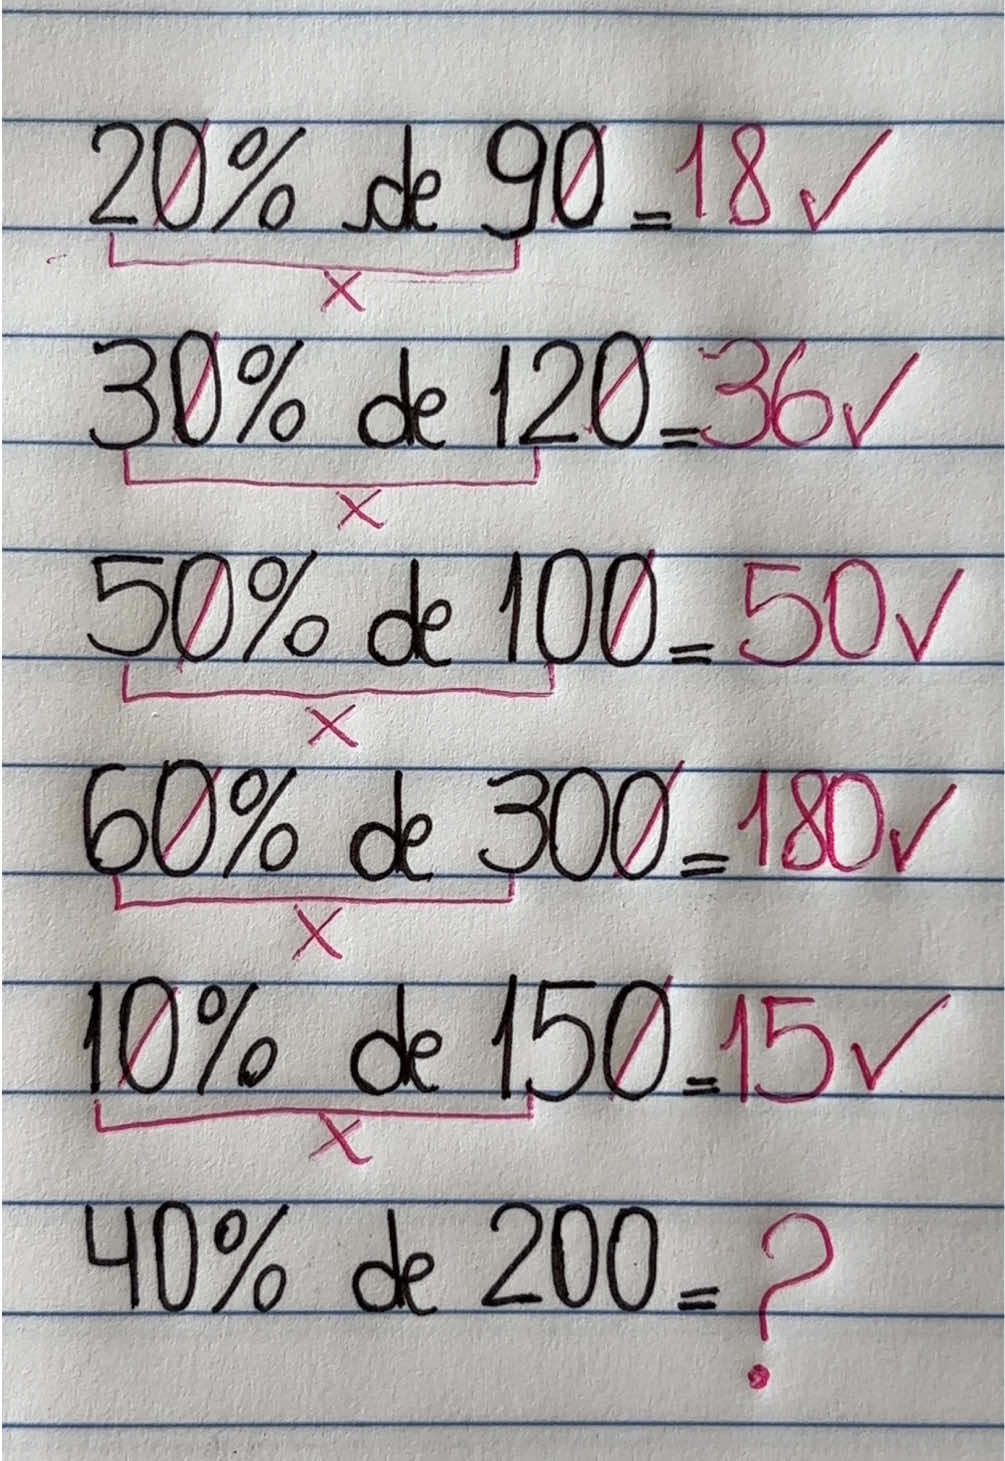 20% de 90 = 18 ✓
x
30% de 120 = 36 ✓
x
50% de 100 = 50 ✓
x
60% de 300 = 180 ✓
x
10% de 150 = 15 ✓
x
40% de 200 = ?